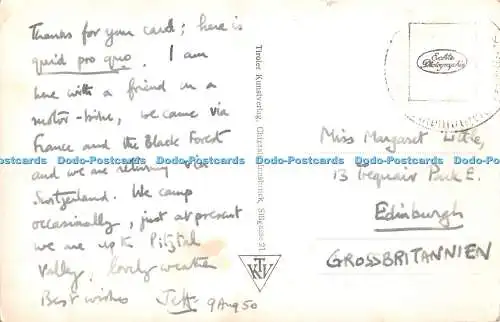 Thanks for your card; here is
quid pro quo. I am
here with a friend on a
motor-bike, we came via
France and the Black Forest
and we are returning via
Switzerland. We camp
occasionally, just at present
we are up the Pitztal
valley, lovely weather
Best wishes Jeff 9 Aug 50
Tiroler Kunstverlag, Chizzali, Innsbruck, Sillgasse 21
TKV
Echte Photographie
Miss Margaret Little,
13 Traquair Park E.
Edinburgh
GROSSBRITANNIEN
Dodo-Postcards Dodo-Postcards Dodo-Postcards Dodo-Postcards Dodo-Postcards Dodo-Postcards